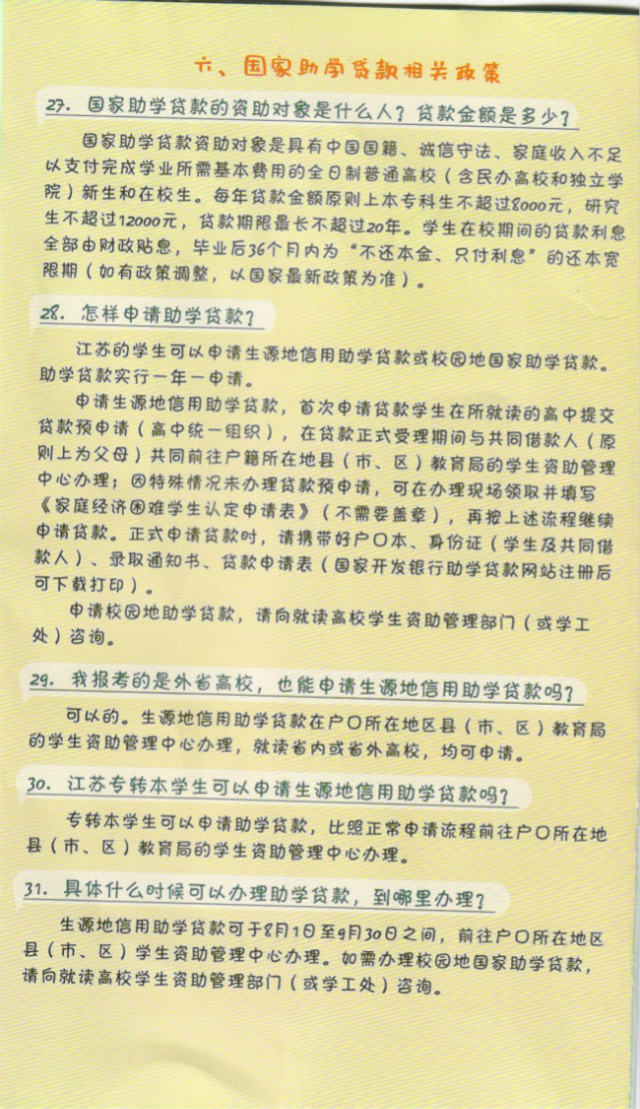 六、国家助学贷款相关政策
27. 国家助学贷款的资助对象是什么人？贷款金额是多少？
国家助学贷款资助对象是具有中国国籍、诚信守法、家庭收入不足
以支付完成学业所需基本费用的全日制普通高校（含民办高校和独立学
院）新生和在校生。每年贷款金额原则上本专科生不超过8000元，研究
生不超过12000元，贷款期限最长不超过20年。学生在校期间的贷款利息
全部由财政贴息，毕业后36个月内为“不还本金、只付利息”的还本宽
限期（如有政策调整，以国家最新政策为准）。
28. 怎样申请助学贷款？
江苏的学生可以申请生源地信用助学贷款或校园地国家助学贷款。
助学贷款实行一年一申请。
申请生源地信用助学贷款，首次申请贷款学生在所就读的高中提交
贷款预申请（高中统一组织），在贷款正式受理期间与共同借款人（原
则上为父母）共同前往户籍所在地县（市、区）教育局的学生资助管理
中心办理；因特殊情况未办理贷款预申请，可在办理现场领取并填写
《家庭经济困难学生认定申请表》（不需要盖章），再按上述流程继续
申请贷款。正式申请贷款时，请携带好户口本、身份证（学生及共同借
款人）、录取通知书、贷款申请表（国家开发银行助学贷款网站注册后
可下载打印）。
申请校园地助学贷款，请向就读高校学生资助管理部门（或学工
处）咨询。
29. 我报考的是外省高校，也能申请生源地信用助学贷款吗？
可以的。生源地信用助学贷款在户口所在地区县（市、区）教育局
的学生资助管理中心办理，就读省内或省外高校，均可申请。
30. 江苏专转本学生可以申请生源地信用助学贷款吗？
专转本学生可以申请助学贷款，比照正常申请流程前往户口所在地
县（市、区）教育局的学生资助管理中心办理。
31. 具体什么时候可以办理助学贷款，到哪里办理？
生源地信用助学贷款可于8月1日至9月30日之间，前往户口所在地区
县（市、区）学生资助管理中心办理。如需办理校园地国家助学贷款，
请向就读高校学生资助管理部门（或学工处）咨询。